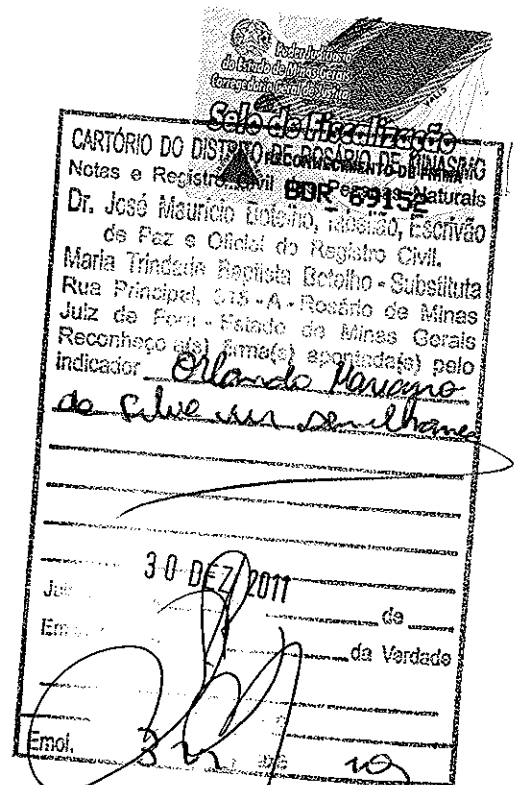 Poder Judiciário
do Estado de Minas Gerais
Corregedoria Geral de Justiça
Selo de Fiscalização
RECONHECIMENTO DE FIRMA
BDR 69152
CARTÓRIO DO DISTRITO DE ROSÁRIO DE MINAS-MG
Notas e Registro Civil de Pessoas Naturais
Dr. José Maurício Botelho, Tabelião, Escrivão
de Paz e Oficial do Registro Civil.
Maria Trindade Baptista Botelho - Substituta
Rua Principal, - A - Rosário de Minas
Juiz de Fora - Estado de Minas Gerais
Reconheço a(s) firma(s) apontada(s) pelo
indicador Orlando Mariano
da Silva
30 DEZ 2011
de
da Verdade
Emol.